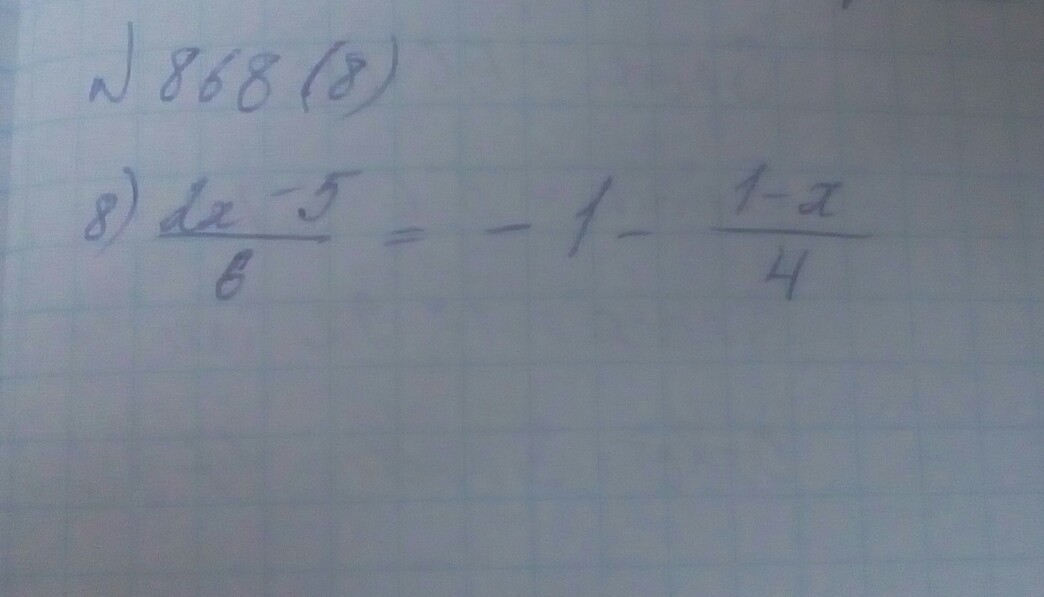 № 868 (8)
8) (2x - 5)/6 = - 1 - (1 - x)/4